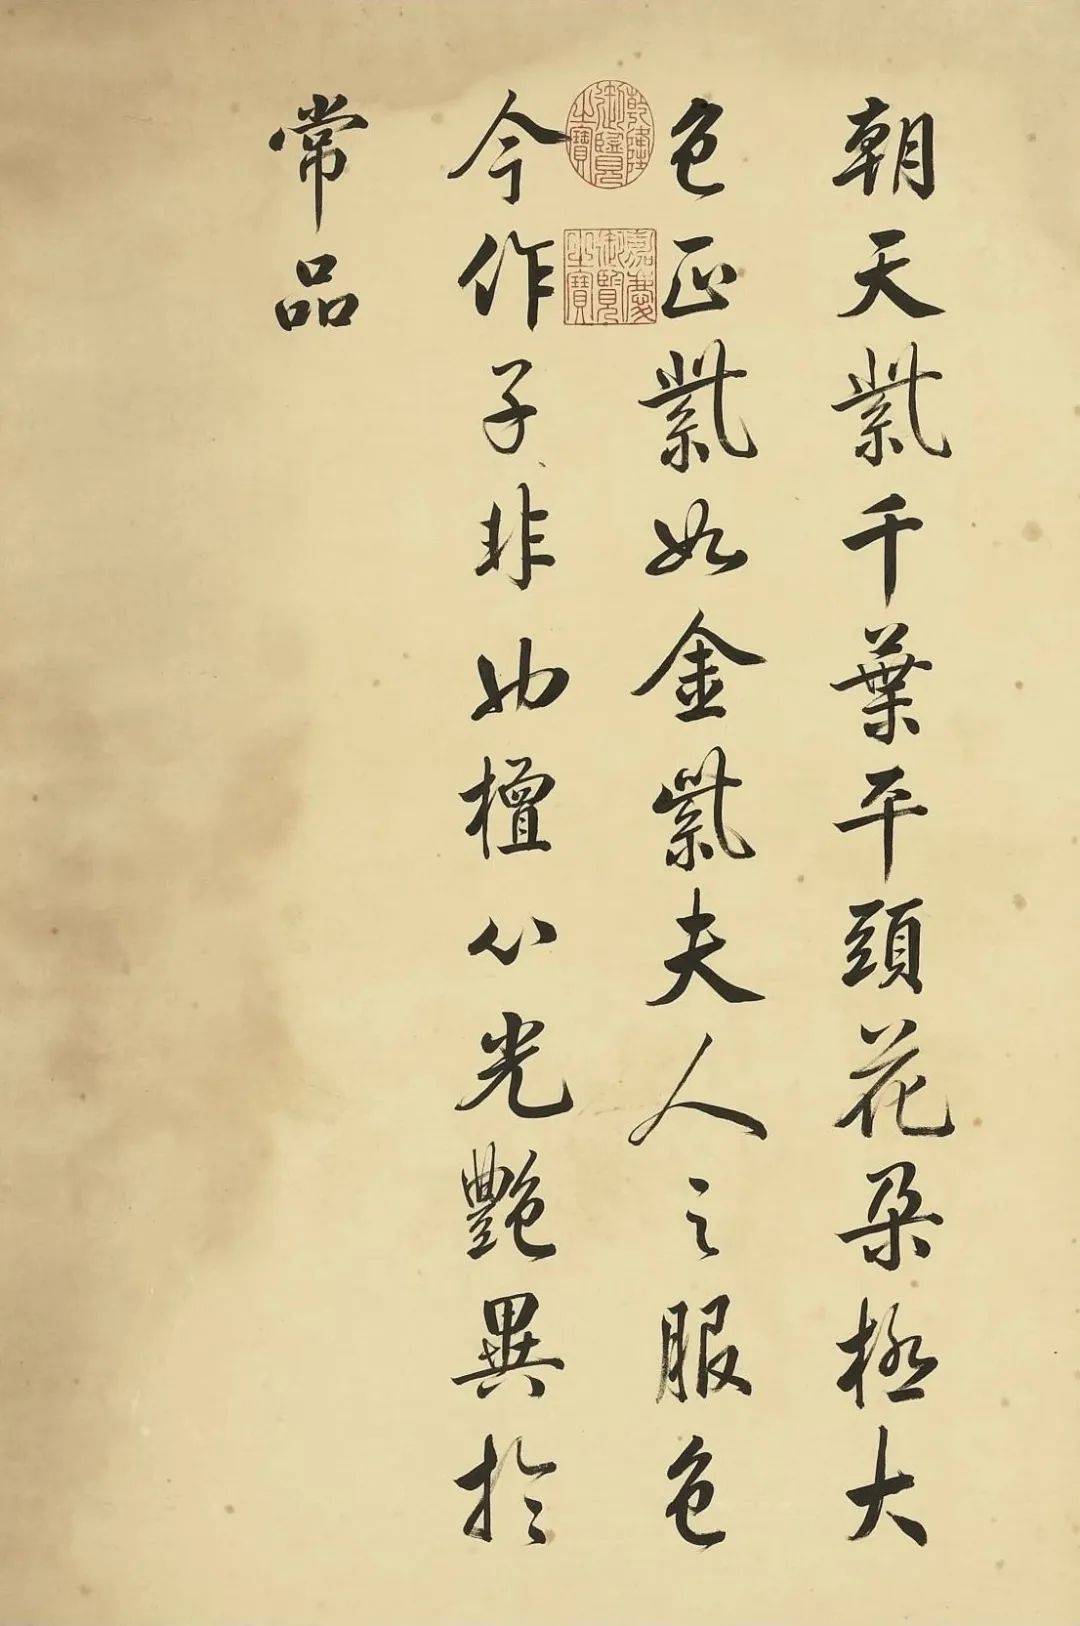 朝天紫千葉平頭花朶極大
色正紫如金紫夫人之服色
今作子非也檀心光艷異於
常品
乾隆御覽之寶
嘉慶御覽之寶